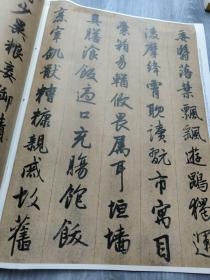 委翳落葉飄颻遊鵾獨運
凌摩絳霄耽讀翫市寓目
囊箱易輶攸畏屬耳垣墻
具膳飡飯適口充腸飽飫
烹宰飢厭糟糠親戚故舊
少異糧妾御績